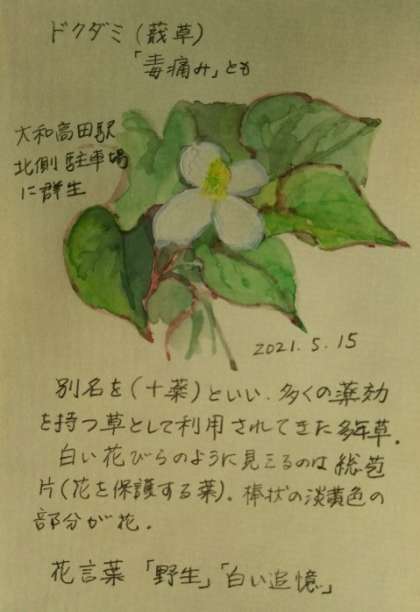 ドクダミ (蕺草)
「毒痛み」とも
大和高田駅
北側駐車場
に群生
2021.5.15
別名を(十薬)といい.多くの薬効
を持つ草として利用されてきた多年草.
白い花びらのように見えるのは総苞
片(花を保護する葉)。棒状の淡黄色の
部分が花.
花言葉 「野生」「白い追憶」